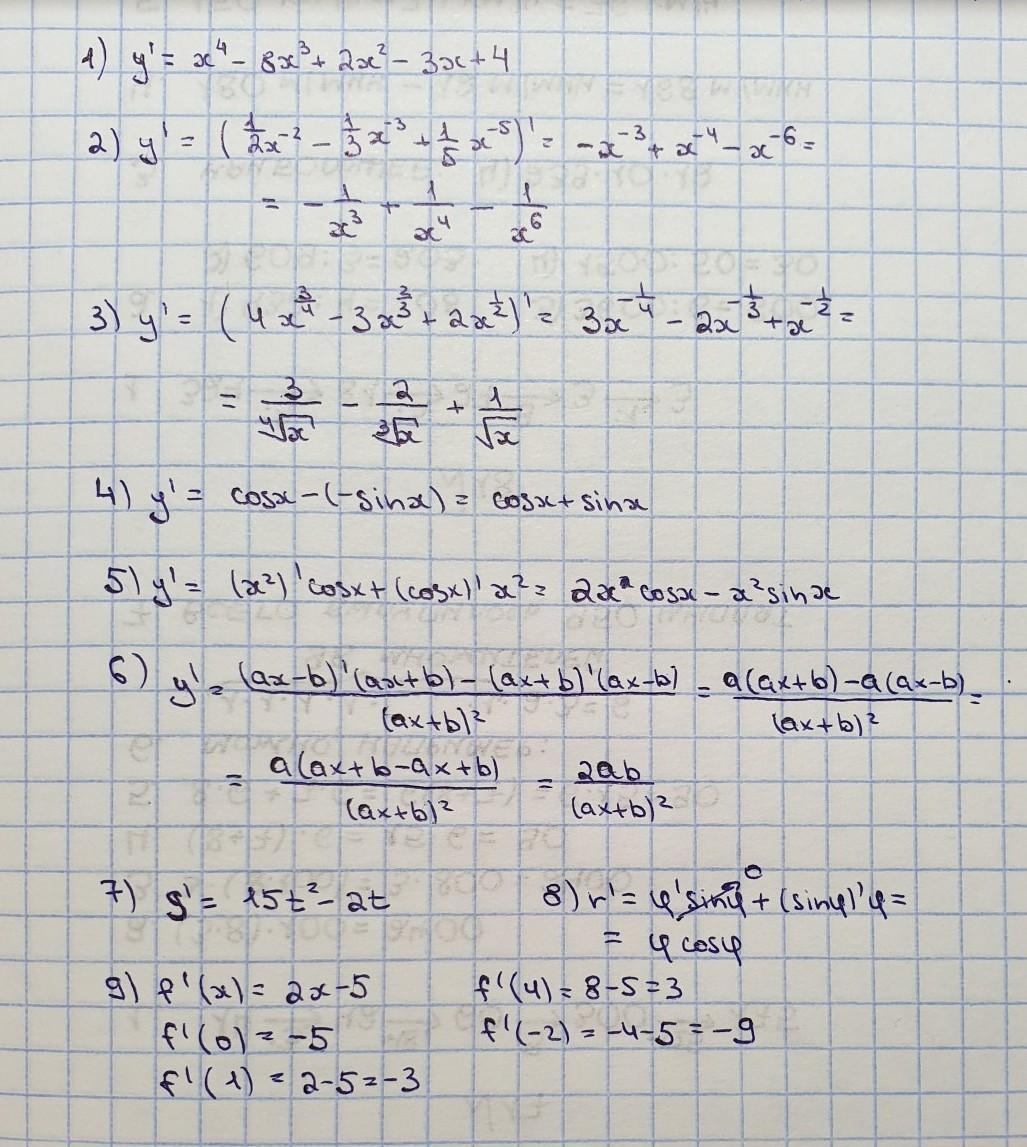 1) y' = x⁴ - 8x³ + 2x² - 3x + 4
2) y' = (1/2 x⁻² - 1/3 x⁻³ + 1/5 x⁻⁵)' = -x⁻³ + x⁻⁴ - x⁻⁶ =
= - 1/x³ + 1/x⁴ - 1/x⁶
3) y' = (4x^(3/4) - 3x^(2/3) + 2x^(1/2))' = 3x^(-1/4) - 2x^(-1/3) + x^(-1/2) =
= 3/⁴√x - 2/³√x + 1/√x
4) y' = cosx - (-sinx) = cosx + sinx
5) y' = (x²)'cosx + (cosx)'x² = 2x cosx - x²sinx
6) y' = ((ax-b)'(ax+b) - (ax+b)'(ax-b))/(ax+b)² = (a(ax+b) - a(ax-b))/(ax+b)² =
= a(ax+b-ax+b)/(ax+b)² = 2ab/(ax+b)²
7) S' = 15t² - 2t
8) r' = φ'sinφ⁰ + (sinφ)'φ =
= φcosφ
9) f'(x) = 2x-5 f'(4) = 8-5 = 3
f'(0) = -5 f'(-2) = -4-5 = -9
f'(1) = 2-5 = -3